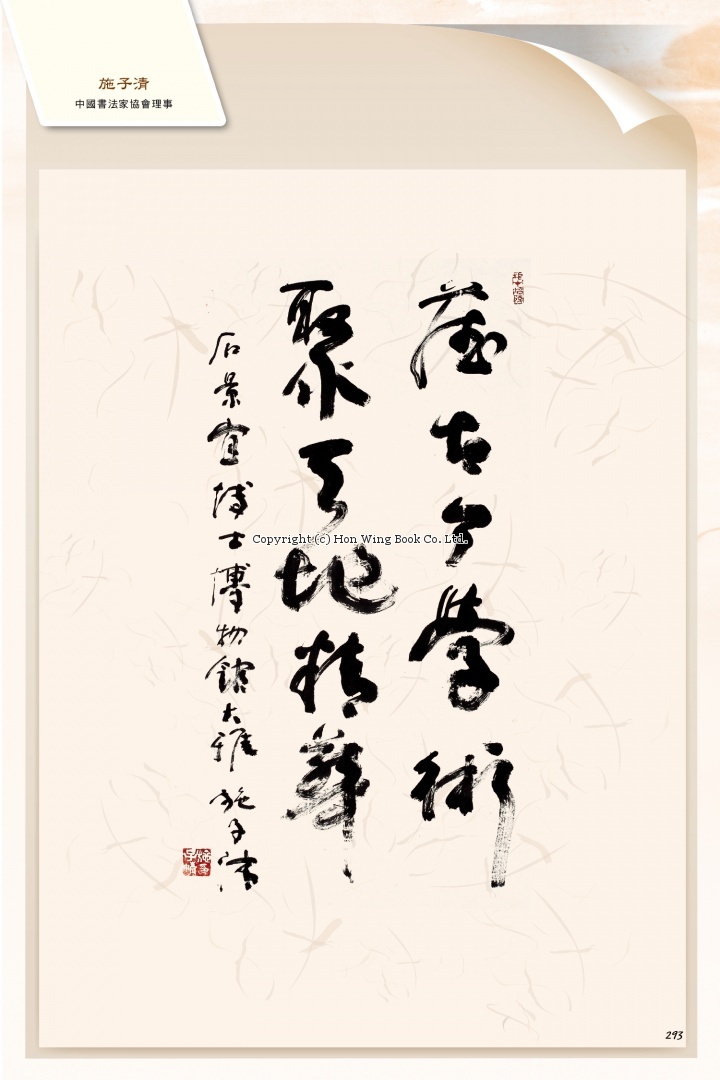 施子清
中國書法家協會理事
藏古今學術
聚天地精華
石景宜博士博物館大雅 施子清
Copyright (c) Hon Wing Book Co. Ltd.
293